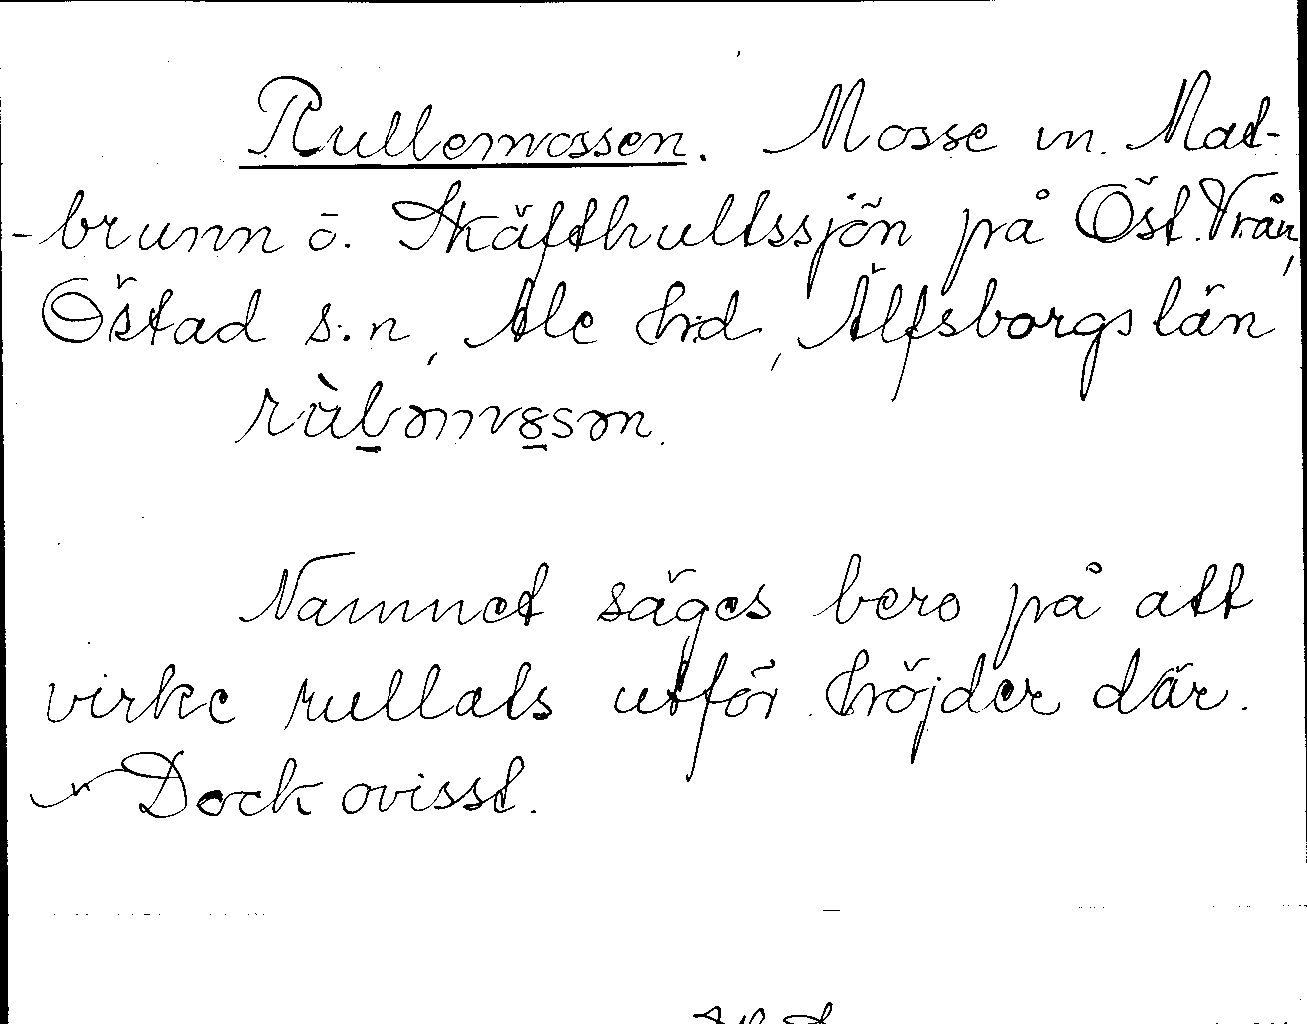 Rullemossen. Mosse m. Mat-
-brunn ö. Skäfthultssjön på Öst. Vrån,
Östad s:n, Ale hd, Älfsborgs län
Namnet säges bero på att
virke rullats utför höjder där.
Dock ovisst.